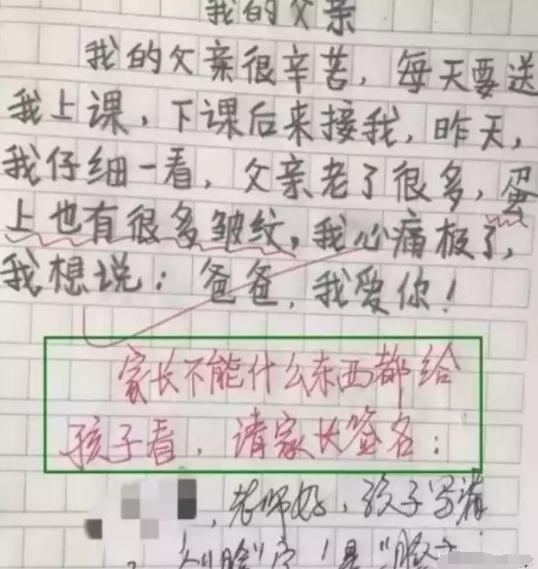 我的父亲
我的父亲很辛苦，每天要送
我上课，下课后来接我，昨天，
我仔细一看，父亲老了很多，蛋
上也有很多皱纹，我心痛极了，
我想说：爸爸，我爱你！
家长不能什么东西都给
孩子看，请家长签名：
，老师好，孩子写
"脸"字！是"脸